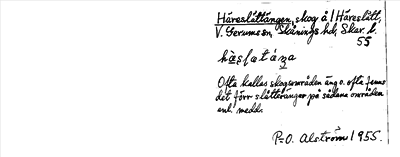 Häreslättängen, skog å 1 Häreslätt,
V. Gerums sn, Skånings hd, Skar. l.
55
Ofta kallas skogsområden äng o. ofta fanns
det förr slåtterängar på sådana områden
enl. medd.
P-O. Alström 1955.